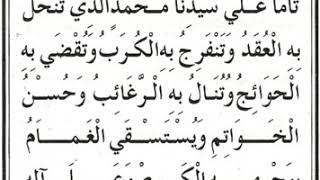 تاما على سيدنا محمد الذي تنحل
بِهِ الْعُقَدُ وَتَنْفَرِجُ بِهِ الْكُرَبُ وَتُقْضَي بِهِ
الْحَوَائِجُ وَتُنَالُ بِهِ الرَّغَائِبُ وَحُسْنُ
الْخَوَاتِمِ وَيُسْتَسْقَي الْغَمَامُ